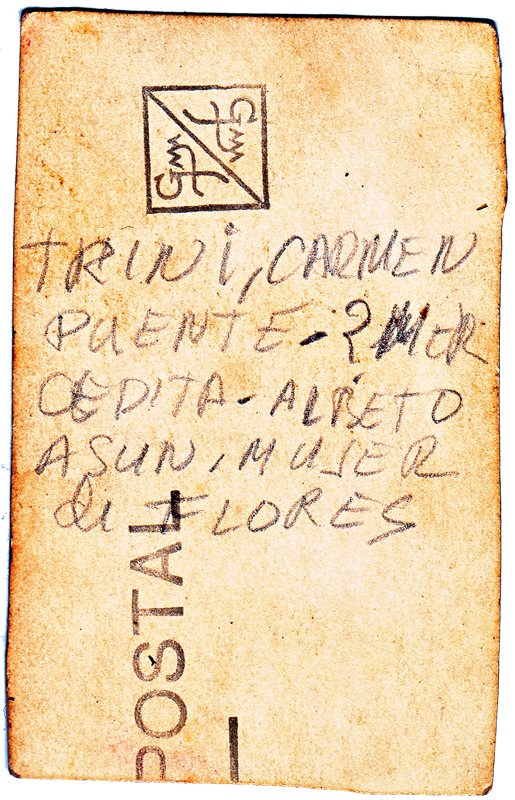 TRINI, CARMEN
PUENTE - ? MER
CEDITA - ALBETO
ASUN, MUJER
de FLORES
POSTAL